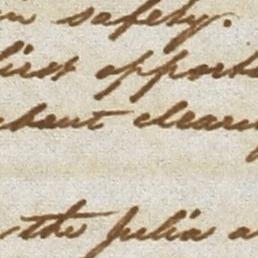 in safety.
first opport
thout clearin
the Julia a